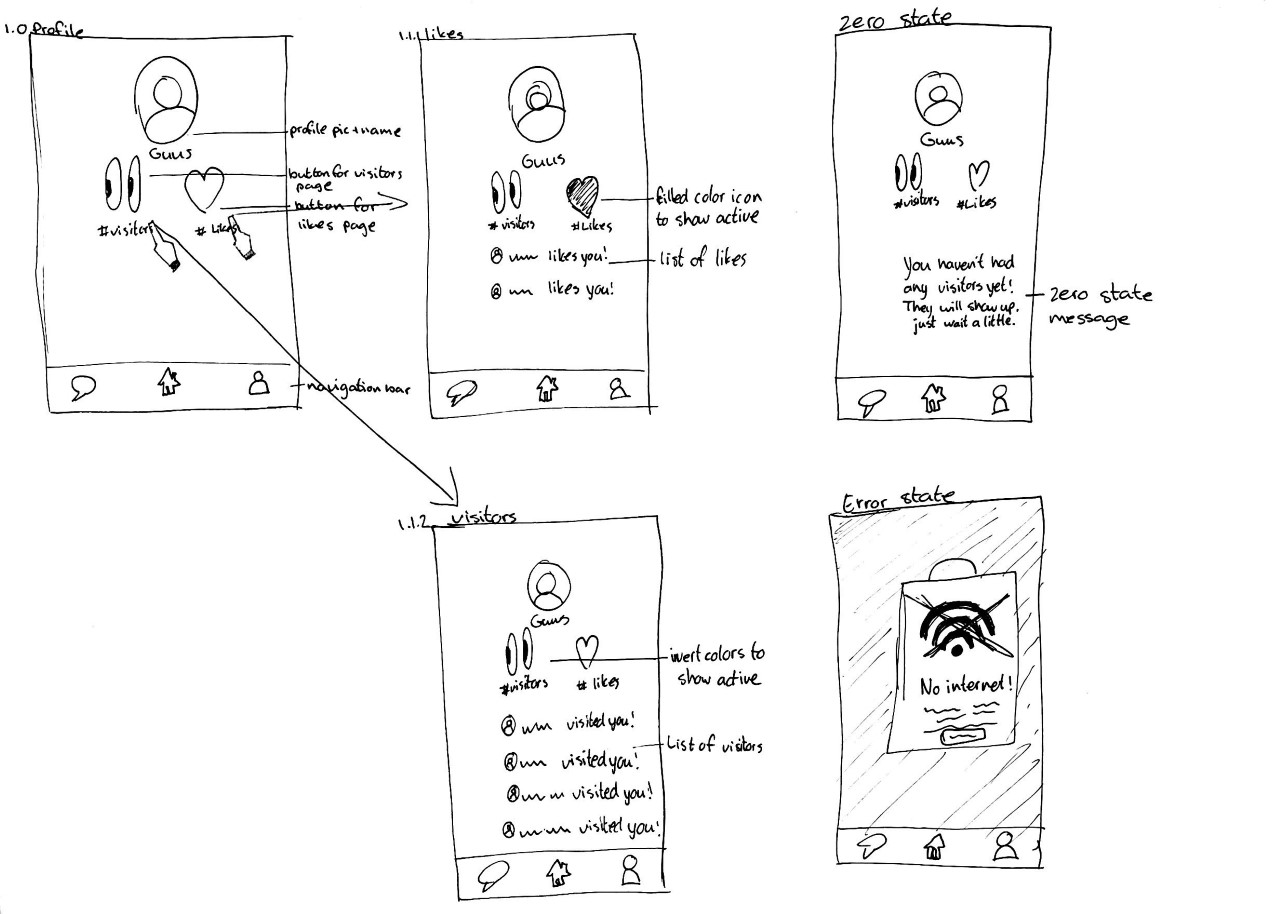 1.0 Profile
Guus
#visitors
# Likes
profile pic+name
button for visitors
page
button for
likes page
navigation bar
1.1.1 likes
Guus
# visitors
#Likes
likes you!
likes you!
filled color icon
to show active
list of likes
Zero state
Guus
#visitors
#Likes
You haven't had
any visitors yet!
They will show up,
just wait a little.
Zero state
message
1.1.2 visitors
Guus
#visitors
# likes
visited you!
visited you!
visited you!
visited you!
invert colors to
show active
List of visitors
Error state
No internet!